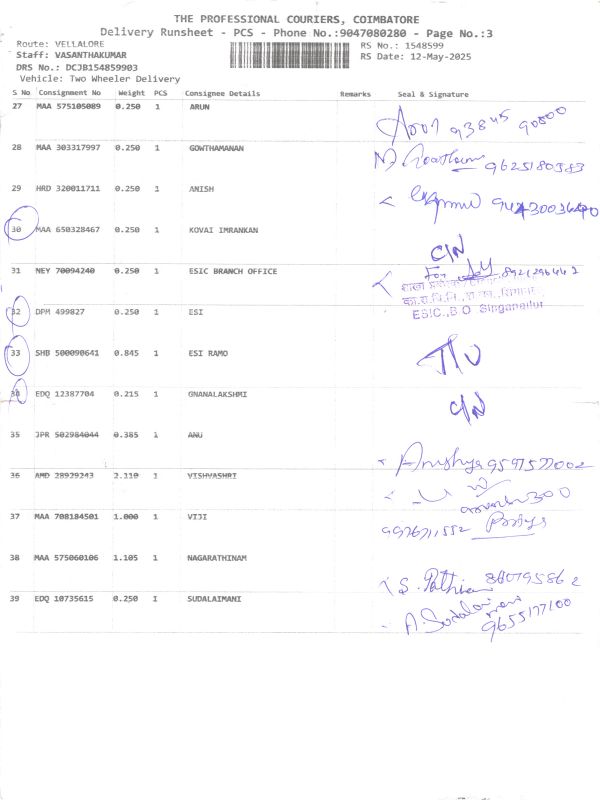 THE PROFESSIONAL COURIERS, COIMBATORE
Delivery Runsheet - PCS - Phone No.:9047080280 - Page No.:3
Route: VELLALORE RS No.: 1548599
Staff: VASANTHAKUMAR RS Date: 12-May-2025
DRS No.: DCJB154859903
Vehicle: Two Wheeler Delivery
S No Consignment No Weight PCS Consignee Details Remarks Seal & Signature
27 MAA 575105089 0.250 1 ARUN
93845 90800
28 MAA 303317997 0.250 1 GOWTHAMANAN
9625180383
29 HRD 320011711 0.250 1 ANISH
30 MAA 650328467 0.250 1 KOVAI IMRANKAN
C/N
31 NEY 70094240 0.250 1 ESIC BRANCH OFFICE
For
शाखा
ESIC., B.O. Singanallur
32 DPM 499827 0.250 1 ESI
33 SHB 500090641 0.845 1 ESI RAMO
34 EDQ 12387704 0.215 1 GNANALAKSHMI
C/N
35 JPR 502984044 0.385 1 ANU
Anushya 9597577002
36 AMD 28929243 2.110 1 VISHVASHRI
37 MAA 708184501 1.000 1 VIJI
9976711552 Priya
38 MAA 575060106 1.105 1 NAGARATHINAM
S.
39 EDQ 10735615 0.250 1 SUDALAIMANI
A. Sudalaimani
9655177100